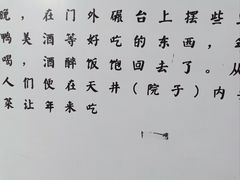 晚，在门外碾台上摆些
鸭美酒等好吃的东西，
喝，酒醉饭饱回去了。从
人们便在天井（院子）内
菜让年来吃